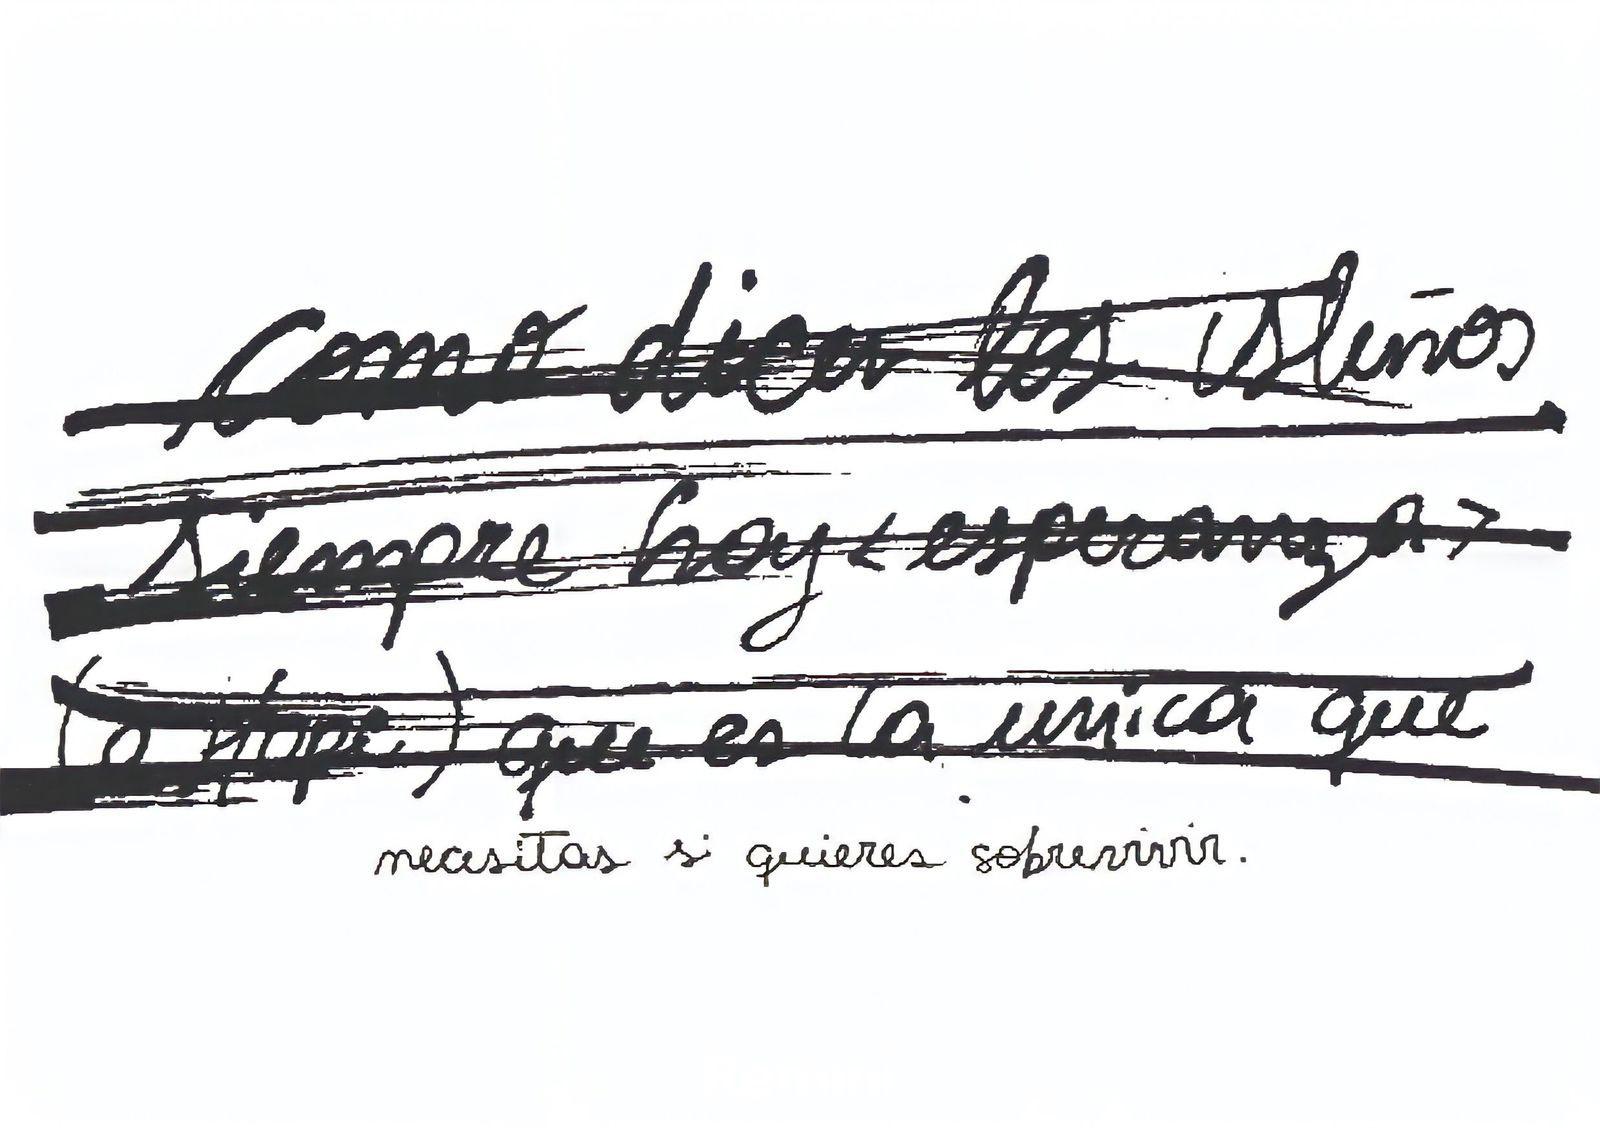 como dicen los isleños
siempre hay <esperanza>
(o hopi) que es la unica que
necesitas si quieres sobrevivir.